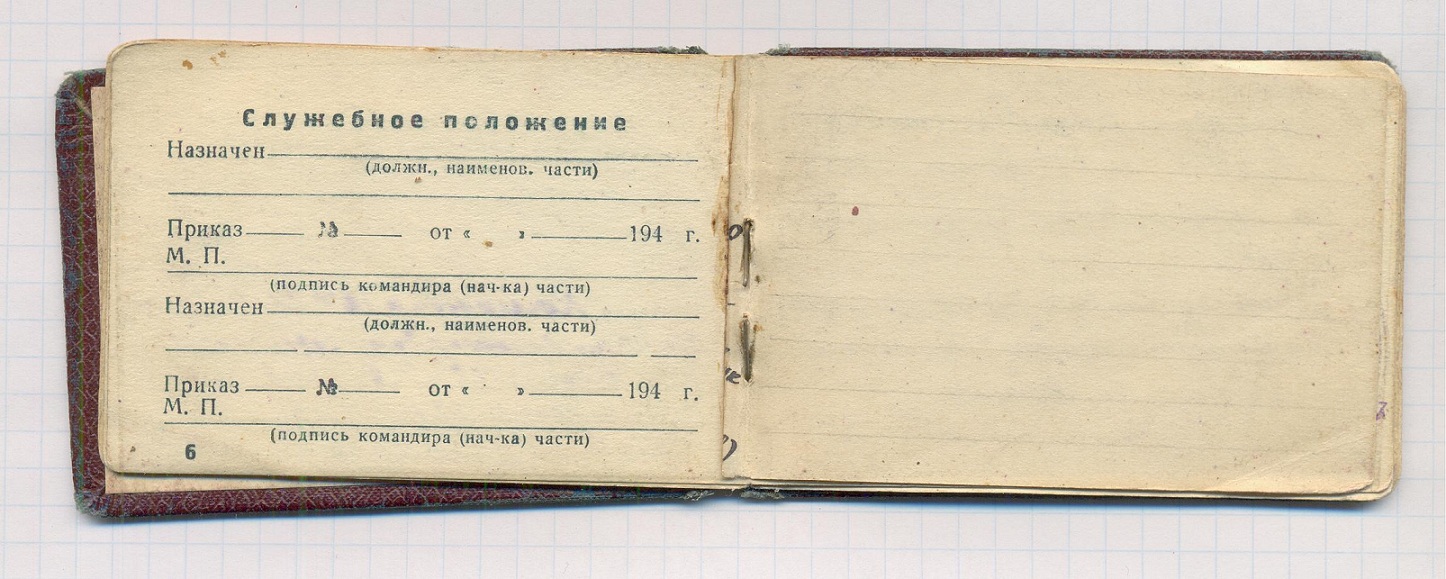 Служебное положение
Назначен
(должн., наименов. части)
Приказ № от « » 194 г.
М. П.
(подпись командира (нач-ка) части)
Назначен
(должн., наименов. части)
Приказ № от « » 194 г.
М. П.
(подпись командира (нач-ка) части)
6